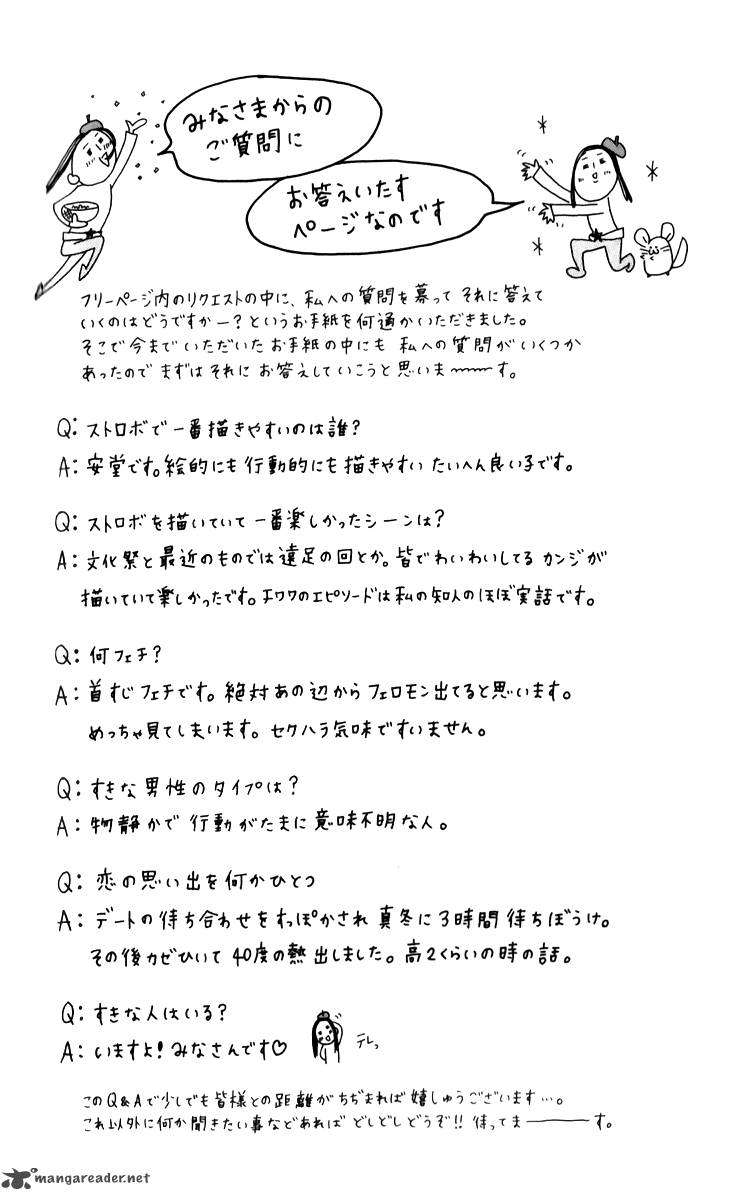 みなさまからの
ご質問に
お答えいたす
ページなのです
フリーページ内のリクエストの中に、私への質問を募って それに答えて
いくのはどうですかー?というお手紙を何通かいただきました。
そこで今までいただいたお手紙の中にも 私への質問がいくつか
あったので まずは それに お答えしていこうと思いま〜〜す。
Q: ストロボで一番描きやすいのは誰?
A: 安堂です。絵的にも行動的にも描きやすい たいへん良い子です。
Q: ストロボを描いていて 一番楽しかったシーンは?
A: 文化祭と最近のものでは遠足の回とか。皆でわいわいしてる カンジが
描いていて楽しかったです。チワワのエピソードは私の知人のほぼ実話です。
Q: 何フェチ?
A: 首すじフェチです。絶対あの辺からフェロモン出てると思います。
めっちゃ見てしまいます。セクハラ気味ですいません。
Q: すきな男性のタイプは?
A: 物静かで 行動がたまに意味不明な人。
Q: 恋の思い出を何かひとつ
A: デートの待ち合わせをすっぽかされ 真冬に3時間待ちぼうけ。
その後カゼひいて 40度の熱出しました。高2くらいの時の話。
Q: すきな人はいる?
A: いますよ!みなさんです♡
テレっ
このQ&Aで少しでも皆様との距離がちぢまれば嬉しゅうございます…。
これ以外に何か聞きたい事などあれば どしどしどうぞ!! 待ってま———す。
mangareader.net